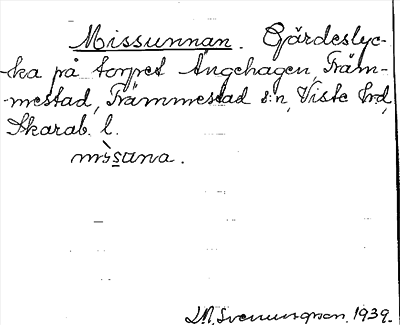 Missunnan. Gärdeslyc-
ka på torpet Ängehagen, Främ-
mestad, Främmestad s:n, Viste hrd,
Skarab. l.
mìsuna.
Svenungson. 1939.